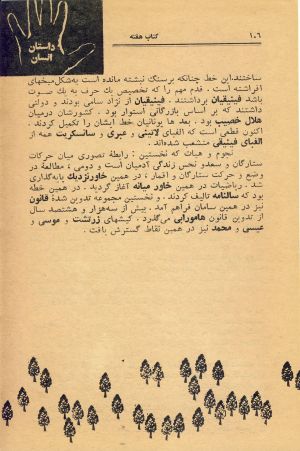 ۱۰۶
کتاب هفته
داستان
انسان
ساختند.این خط چنانکه برسنگ نبشته مانده است به‌شکل‌میخهای
افراشته است . قدم مهم را که تخصیص یك حرف به یك صوت
باشد فینیقیان برداشتند . فینیقیان از نژاد سامی بودند و دولتی
داشتند که بر اساس بازرگانی استوار بود . کشورشان درمیان
هلال خصیب بود . بعد ها یونانیان خط ایشان را تکمیل کردند.
اکنون قطعی است که الفبای لاتینی و عبری و سانسکریت همه از
الفبای فینیقی منشعب شده‌اند .
نجوم و هیأت که نخستین : رابطهٔ تصوری میان حرکات
ستارگان و سعدو نحس زندگی آدمیان است و دومی ، مطالعهٔ در
وضع و حرکت ستارگان و اقمار ، در همین خاورنزدیك پایه‌گذاری
شد . ریاضیات در همین خاور میانه آغاز گردید . در همین خطه
بود که سالنامه تالیف کردند . و نخستین مجموعه تدوین شدهٔ قانون
نیز در همین سامان فراهم آمد . بیش از سه‌هزار و هشتصد سال
از تدوین قانون هامورابی می‌گذرد . کیشهای زرتشت و موسی و
عیسی و محمد نیز در همین نقاط گسترش یافت .